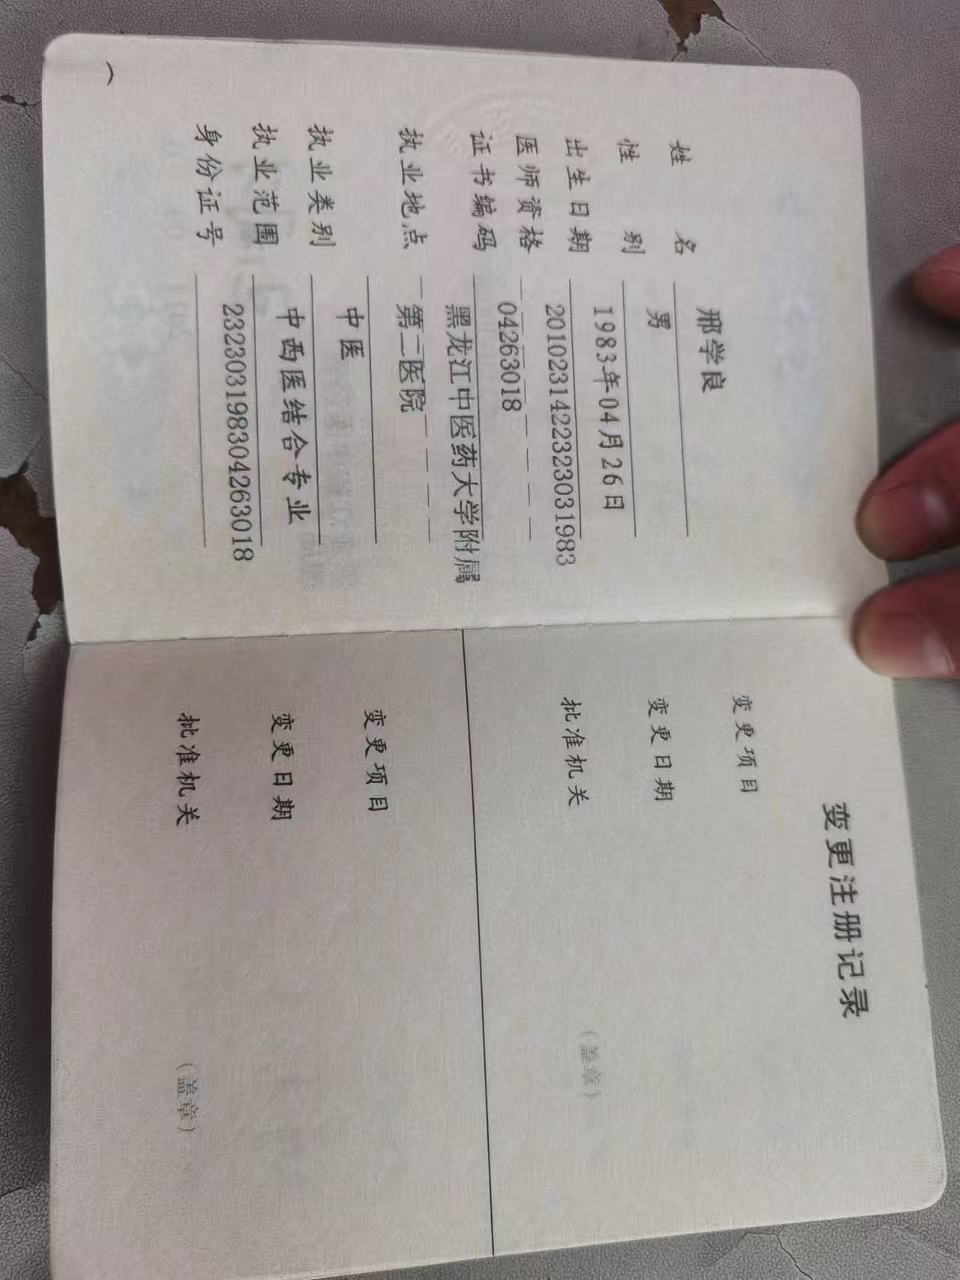 姓 名 邢学良
性 别 男
出生日期 1983年04月26日
医师资格 2010231422323031983
证书编码 04263018
执业地点 黑龙江中医药大学附属
第二医院
执业类别 中医
执业范围 中西医结合专业
身份证号 232303198304263018
变更注册记录
变更项目
变更日期
批准机关
(盖章)
变更项目
变更日期
批准机关
(盖章)